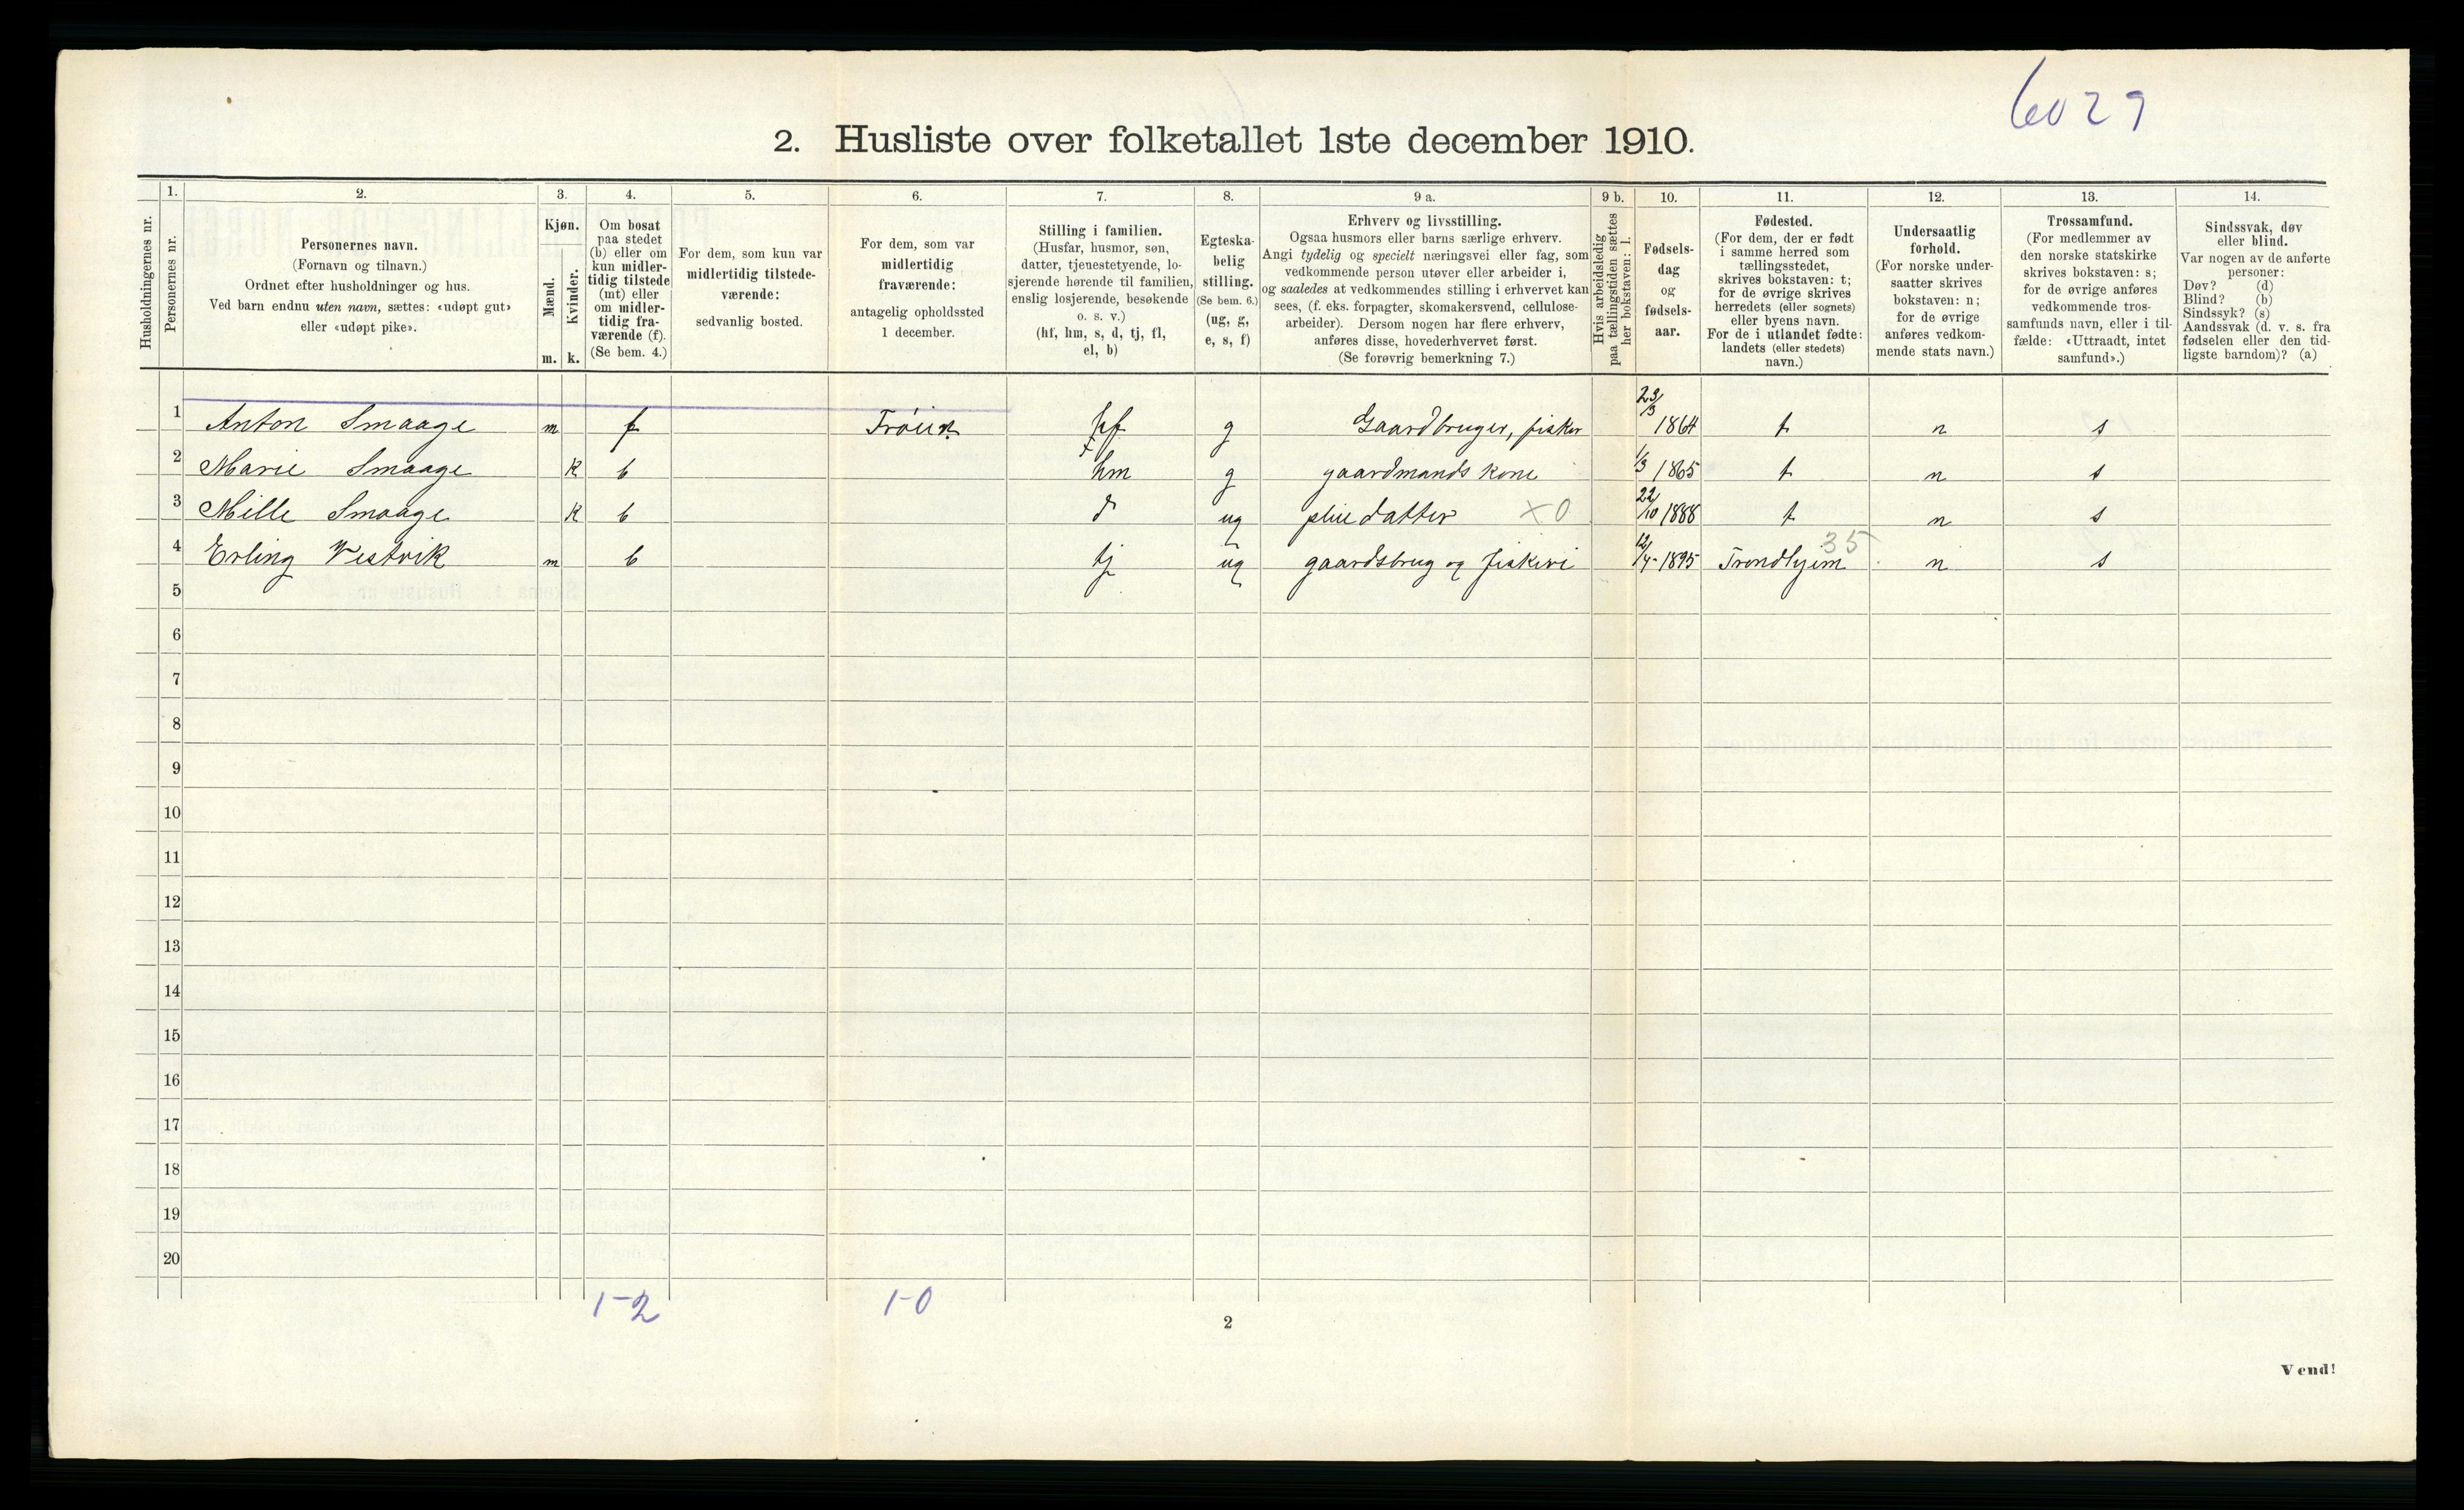 6029
2. Husliste over folketallet 1ste december 1910.
Husholdningernes nr.
1.
Personernes nr.
2.
Personernes navn.
(Fornavn og tilnavn.)
Ordnet efter husholdninger og hus.
Ved barn endnu uten navn, sættes: «udøpt gut»
eller «udøpt pike».
3.
Kjøn.
Mænd.
Kvinder.
m. k.
4.
Om bosat
paa stedet
(b) eller om
kun midler-
tidig tilstede
(mt) eller
om midler-
tidig fra-
værende (f).
(Se bem. 4.)
5.
For dem, som kun var
midlertidig tilstede-
værende:
sedvanlig bosted.
6.
For dem, som var
midlertidig
fraværende:
antagelig opholdssted
1 december.
7.
Stilling i familien.
(Husfar, husmor, søn,
datter, tjenestetyende, lo-
sjerende hørende til familien,
enslig losjerende, besøkende
o. s. v.)
(hf, hm, s, d, tj, fl,
el, b)
8.
Egteska-
belig
stilling.
(Se bem. 6.)
(ug, g,
e, s, f)
9 a.
Erhverv og livsstilling.
Ogsaa husmors eller barns særlige erhverv.
Angi tydelig og specielt næringsvei eller fag, som
vedkommende person utøver eller arbeider i,
og saaledes at vedkommendes stilling i erhvervet kan
sees, (f. eks. forpagter, skomakersvend, cellulose-
arbeider). Dersom nogen har flere erhverv,
anføres disse, hovederhvervet først.
(Se forøvrig bemerkning 7.)
9 b.
Hvis arbeidsledig
paa tællingstiden sættes
her bokstaven: l.
10.
Fødsels-
dag
og
fødsels-
aar.
11.
Fødested.
(For dem, der er født
i samme herred som
tællingsstedet,
skrives bokstaven: t;
for de øvrige skrives
herredets (eller sognets)
eller byens navn.
For de i utlandet fødte:
landets (eller stedets)
navn.)
12.
Undersaatlig
forhold.
(For norske under-
saatter skrives
bokstaven: n;
for de øvrige
anføres vedkom-
mende stats navn.)
13.
Trossamfund.
(For medlemmer av
den norske statskirke
skrives bokstaven: s;
for de øvrige anføres
vedkommende tros-
samfunds navn, eller i til-
fælde: «Uttraadt, intet
samfund».)
14.
Sindssvak, døv
eller blind.
Var nogen av de anførte
personer:
Døv? (d)
Blind? (b)
Sindssyk? (s)
Aandssvak (d. v. s. fra
fødselen eller den tid-
ligste barndom)? (a)
1 Anton Smaage m f hf g Gaardbruger, fisker 23/3 1864 t n s
2 Marie Smaage K b hm g gaardmands kone 1/3 1865 t n s
3 Mille Smaage K b d ug datter X0 22/10 1888 t n s
35
4 Erling Vestvik m b tj ug gaardsbrug og fiskeri 12/4-1895 Trondhjem n s
5
6
7
8
9
10
11
12
13
14
15
16
17
18
19
20
1-2 1-0
2
Vend!